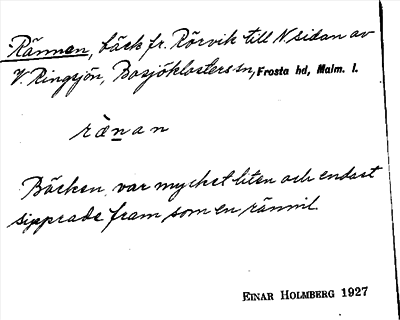 Rännen, bäck fr. Rörvik till N sidan av
V. Ringsjön, Bosjöklosters sn, Frosta hd, Malm. l.
rànan
Bäcken var mycket liten och endast
sipprade fram som en rännil.
EINAR HOLMBERG 1927